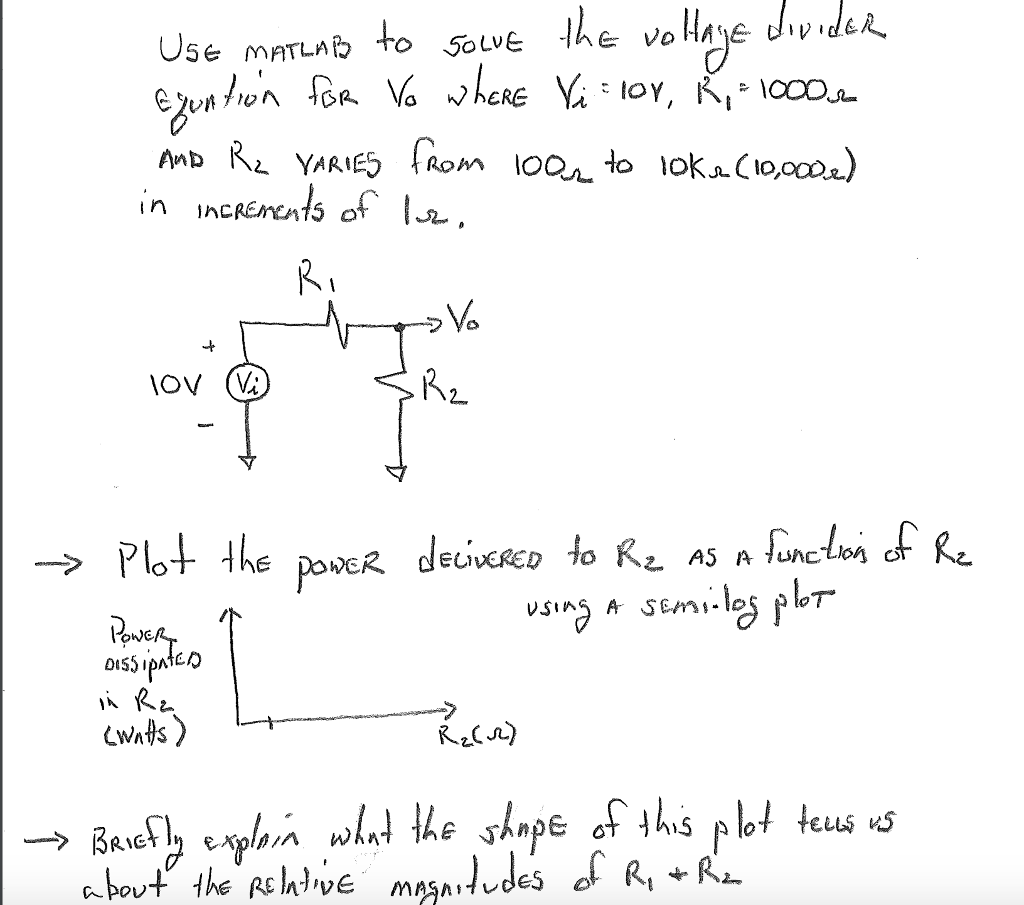 USE MATLAB to SOLVE the voltage divider
Equation for Vo where Vi = 10V, R1 = 1000Ω
AND R2 VARIES from 100Ω to 10KΩ (10,000Ω)
in increments of 1Ω.
R1
Vo
+
10V
Vi
R2
-
→ Plot the power delivered to R2 AS A function of R2
using A semi-log plot
Power
Dissipated
in R2
(Watts)
R2(Ω)
→ Briefly explain what the shape of this plot tells us
about the relative magnitudes of R1 + R2